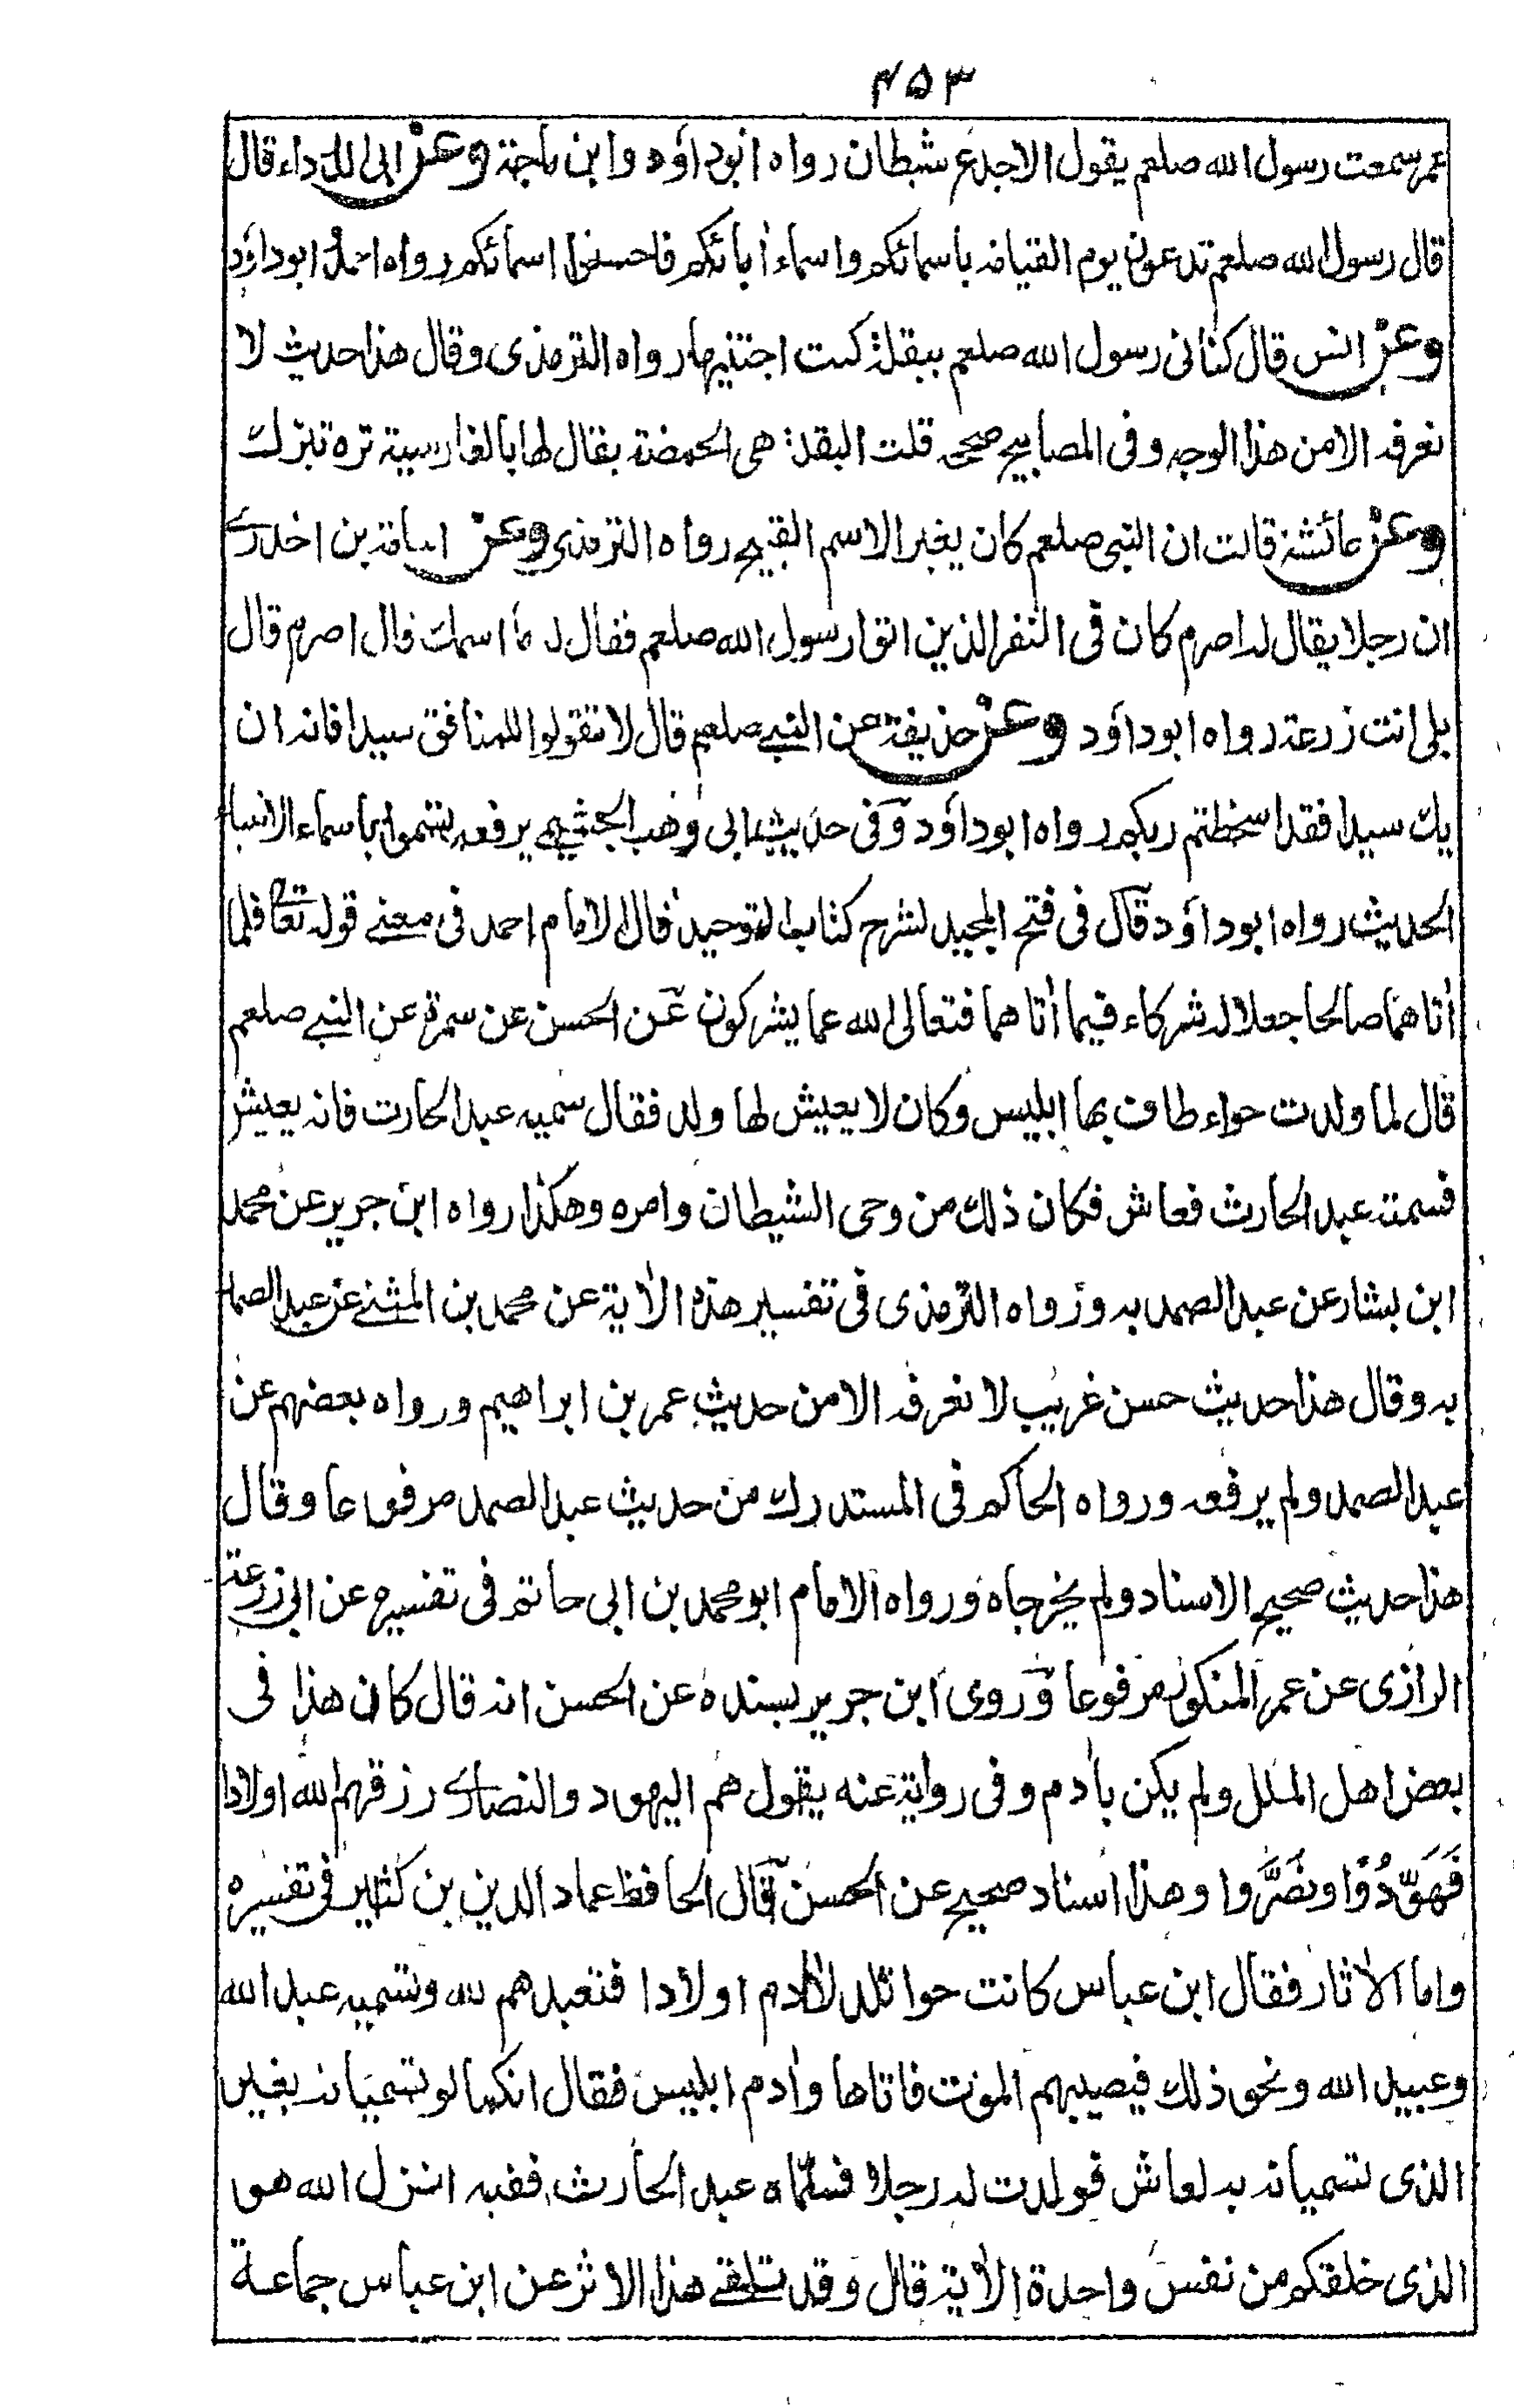 ۴۵۳
عمر سمعت رسول الله صلعم يقول الاجدع شيطان رواه ابو داؤد وابن ماجة وعن ابى الدرداء قال
قال رسول الله صلعم تدعون يوم القيامة باسمائكم واسماء اٰبائكم فاحسنوا اسمائكم رواه احمد ابو داؤد
وعن انس قال كنانى رسول الله صلعم ببقلة كنت اجتنيها رواه الترمذى وقال هذا حديث لا
نعرفه الا من هذا الوجه وفى المصابيح صححه قلت البقلة هى الحمضة يقال لها بالفارسية تره تيزك
وعن عائشة قالت ان النبى صلعم كان يغير الاسم القبيح رواه الترمذى وعن اسامة بن اخدرى
ان رجلا يقال له اصرم كان فى النفر الذين اتوا رسول الله صلعم فقال له ما اسمك قال اصرم قال
بلى انت زرعة رواه ابو داؤد وعن حذيفة عن النبى صلعم قال لا تقولوا للمنافق سيدا فانه ان
يك سيدا فقد اسخطتم ربكم رواه ابو داؤد وفى حديث ابى وهب الجشمى يرفعه تسموا باسماء الانبياء
الحديث رواه ابو داؤد قال فى فتح المجيد لشرح كتاب التوحيد قال الامام احمد فى معنى قوله تعالى فلما
اٰتاهما صالحا جعلا له شركاء فيما اٰتاهما فتعالى الله عما يشركون عن الحسن عن سمرة عن النبى صلعم
قال لما ولدت حواء طاف بها ابليس وكان لا يعيش لها ولد فقال سميه عبد الحارث فانه يعيش
فسمته عبد الحارث فعاش فكان ذلك من وحى الشيطان وامره وهكذا رواه ابن جرير عن محمد
ابن بشار عن عبد الصمد به ورواه الترمذى فى تفسير هذه الاٰية عن محمد بن المثنى عن عبد الصمد
به وقال هذا حديث حسن غريب لا نعرفه الا من حديث عمر بن ابراهيم ورواه بعضهم عن
عبد الصمد ولم يرفعه ورواه الحاكم فى المستدرك من حديث عبد الصمد مرفوعا وقال
هذا حديث صحيح الاسناد ولم يخرجاه ورواه الامام ابو محمد بن ابى حاتم فى تفسيره عن ابى زرعة
الرازى عن عمر المذكور مرفوعا وروى ابن جرير بسنده عن الحسن انه قال كان هذا فى
بعض اهل الملل ولم يكن باٰدم وفى رواية عنه يقول هم اليهود والنصارى رزقهم الله اولادا
فَهَوَّدُوْا ونَصَّرُوا وهذا اسناد صحيح عن الحسن قال الحافظ عماد الدين بن كثير فى تفسيره
واما الاٰثار فقال ابن عباس كانت حوا تلد لاٰدم اولادا فتعبدهم لله وتسميه عبد الله
وعبيد الله ونحو ذلك فيصيبهم الموت فاتاها واٰدم ابليس فقال انكما لو تسميانه بغير
الذى تسميانه به لعاش فولدت له رجلا فسمّاه عبد الحارث ففيه انزل الله هو
الذى خلقكم من نفس واحدة الاٰية قال وقد تلقى هذا الاثر عن ابن عباس جماعة